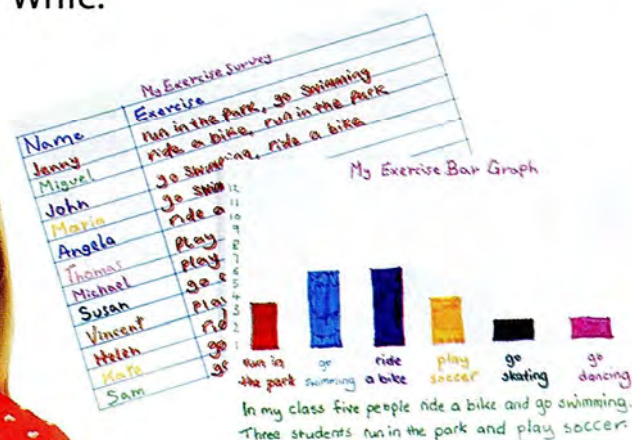 My Exercise Survey
Name Exercise
Jenny run in the park, go swimming
Miguel ride a bike, run in the park
John go swimming, ride a bike
Maria go
Angela ride a
Thomas play
Michael play
Susan go
Vincent
Helen
Kate go
Sam
My Exercise Bar Graph
12
11
10
9
8
7
6
5
4
3
2
1
run in go ride play go go
the park swimming a bike soccer skating dancing
In my class five people ride a bike and go swimming.
Three students run in the park and play soccer.